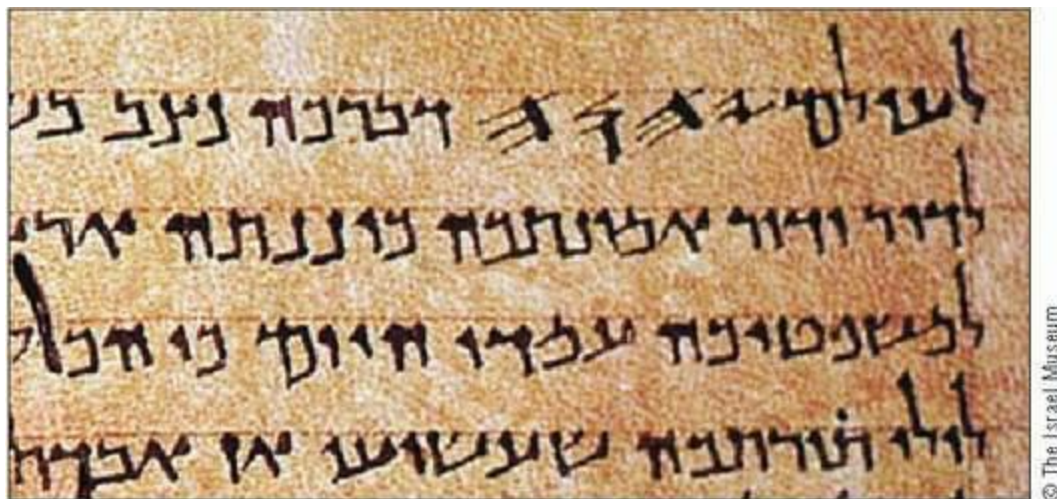 לעולם 𐤉𐤄𐤅𐤄 דברכה נצב בש
לדור ודור אמונתכה כוננתה ארץ
למשפטיכה עמדו היום כי הכול
לולי תורתכה שעשועי אז אבדת
© The Israel Museum